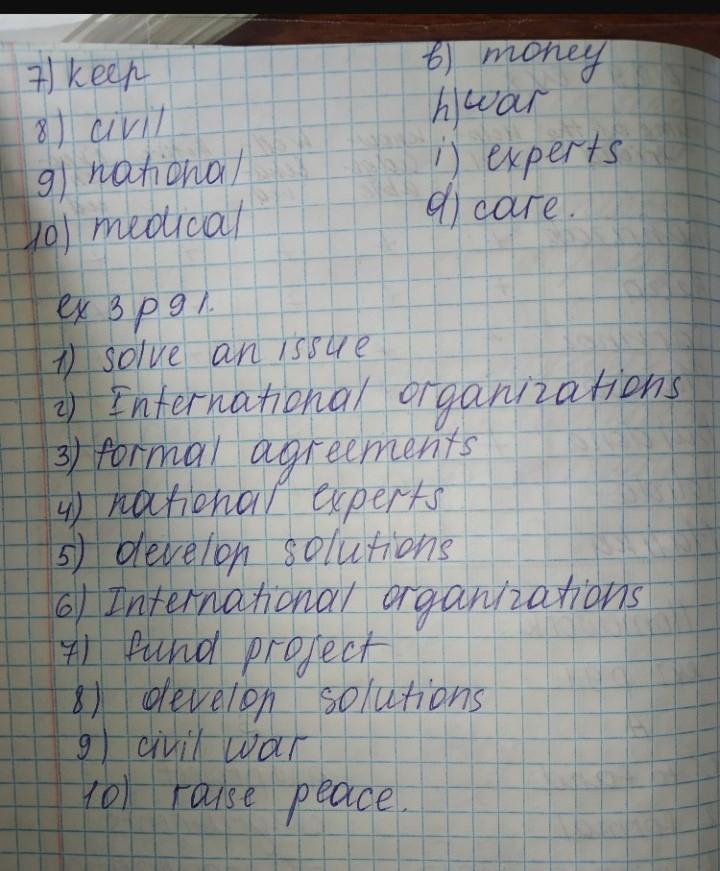 7) keep b) money
8) civil h) war
9) national i) experts
10) medical d) care.
ex 3 p 91.
1) solve an issue
2) International organizations
3) formal agreements
4) national experts
5) develop solutions
6) International organizations
7) fund project
8) develop solutions
9) civil war
10) raise peace.